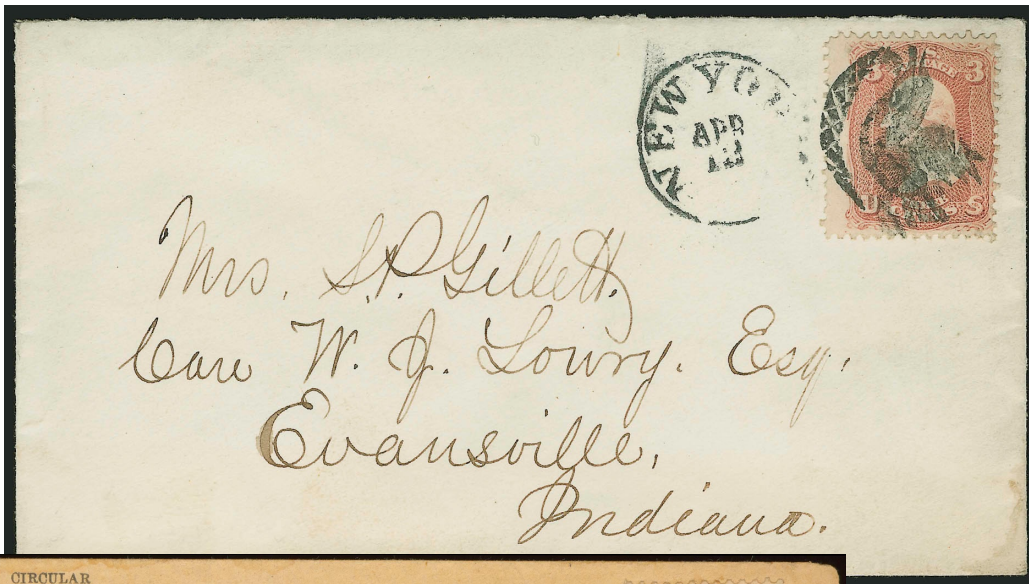 NEW YO
APR
3 3
U S
Mrs. S. P. Gillett.
Care W. J. Lowry. Esq.
Evansville,
Indiana.
CIRCULAR